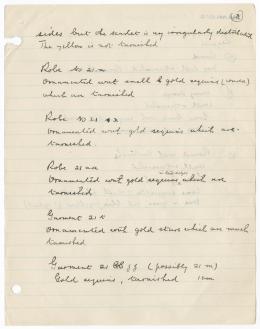 sides but the  is very irregularly distributed
The yellow is not tarnished
Robe 21
Ornamented with small gold sequins
which are tarnished
Robe 21
Ornamented with gold sequins which are
tarnished
Robe 21
Ornamented with gold sequins which are not
tarnished
Garment 21 t
Ornamented with gold stars which are much
tarnished
Garment 21 jj (possibly 21 m)
Gold sequins, tarnished